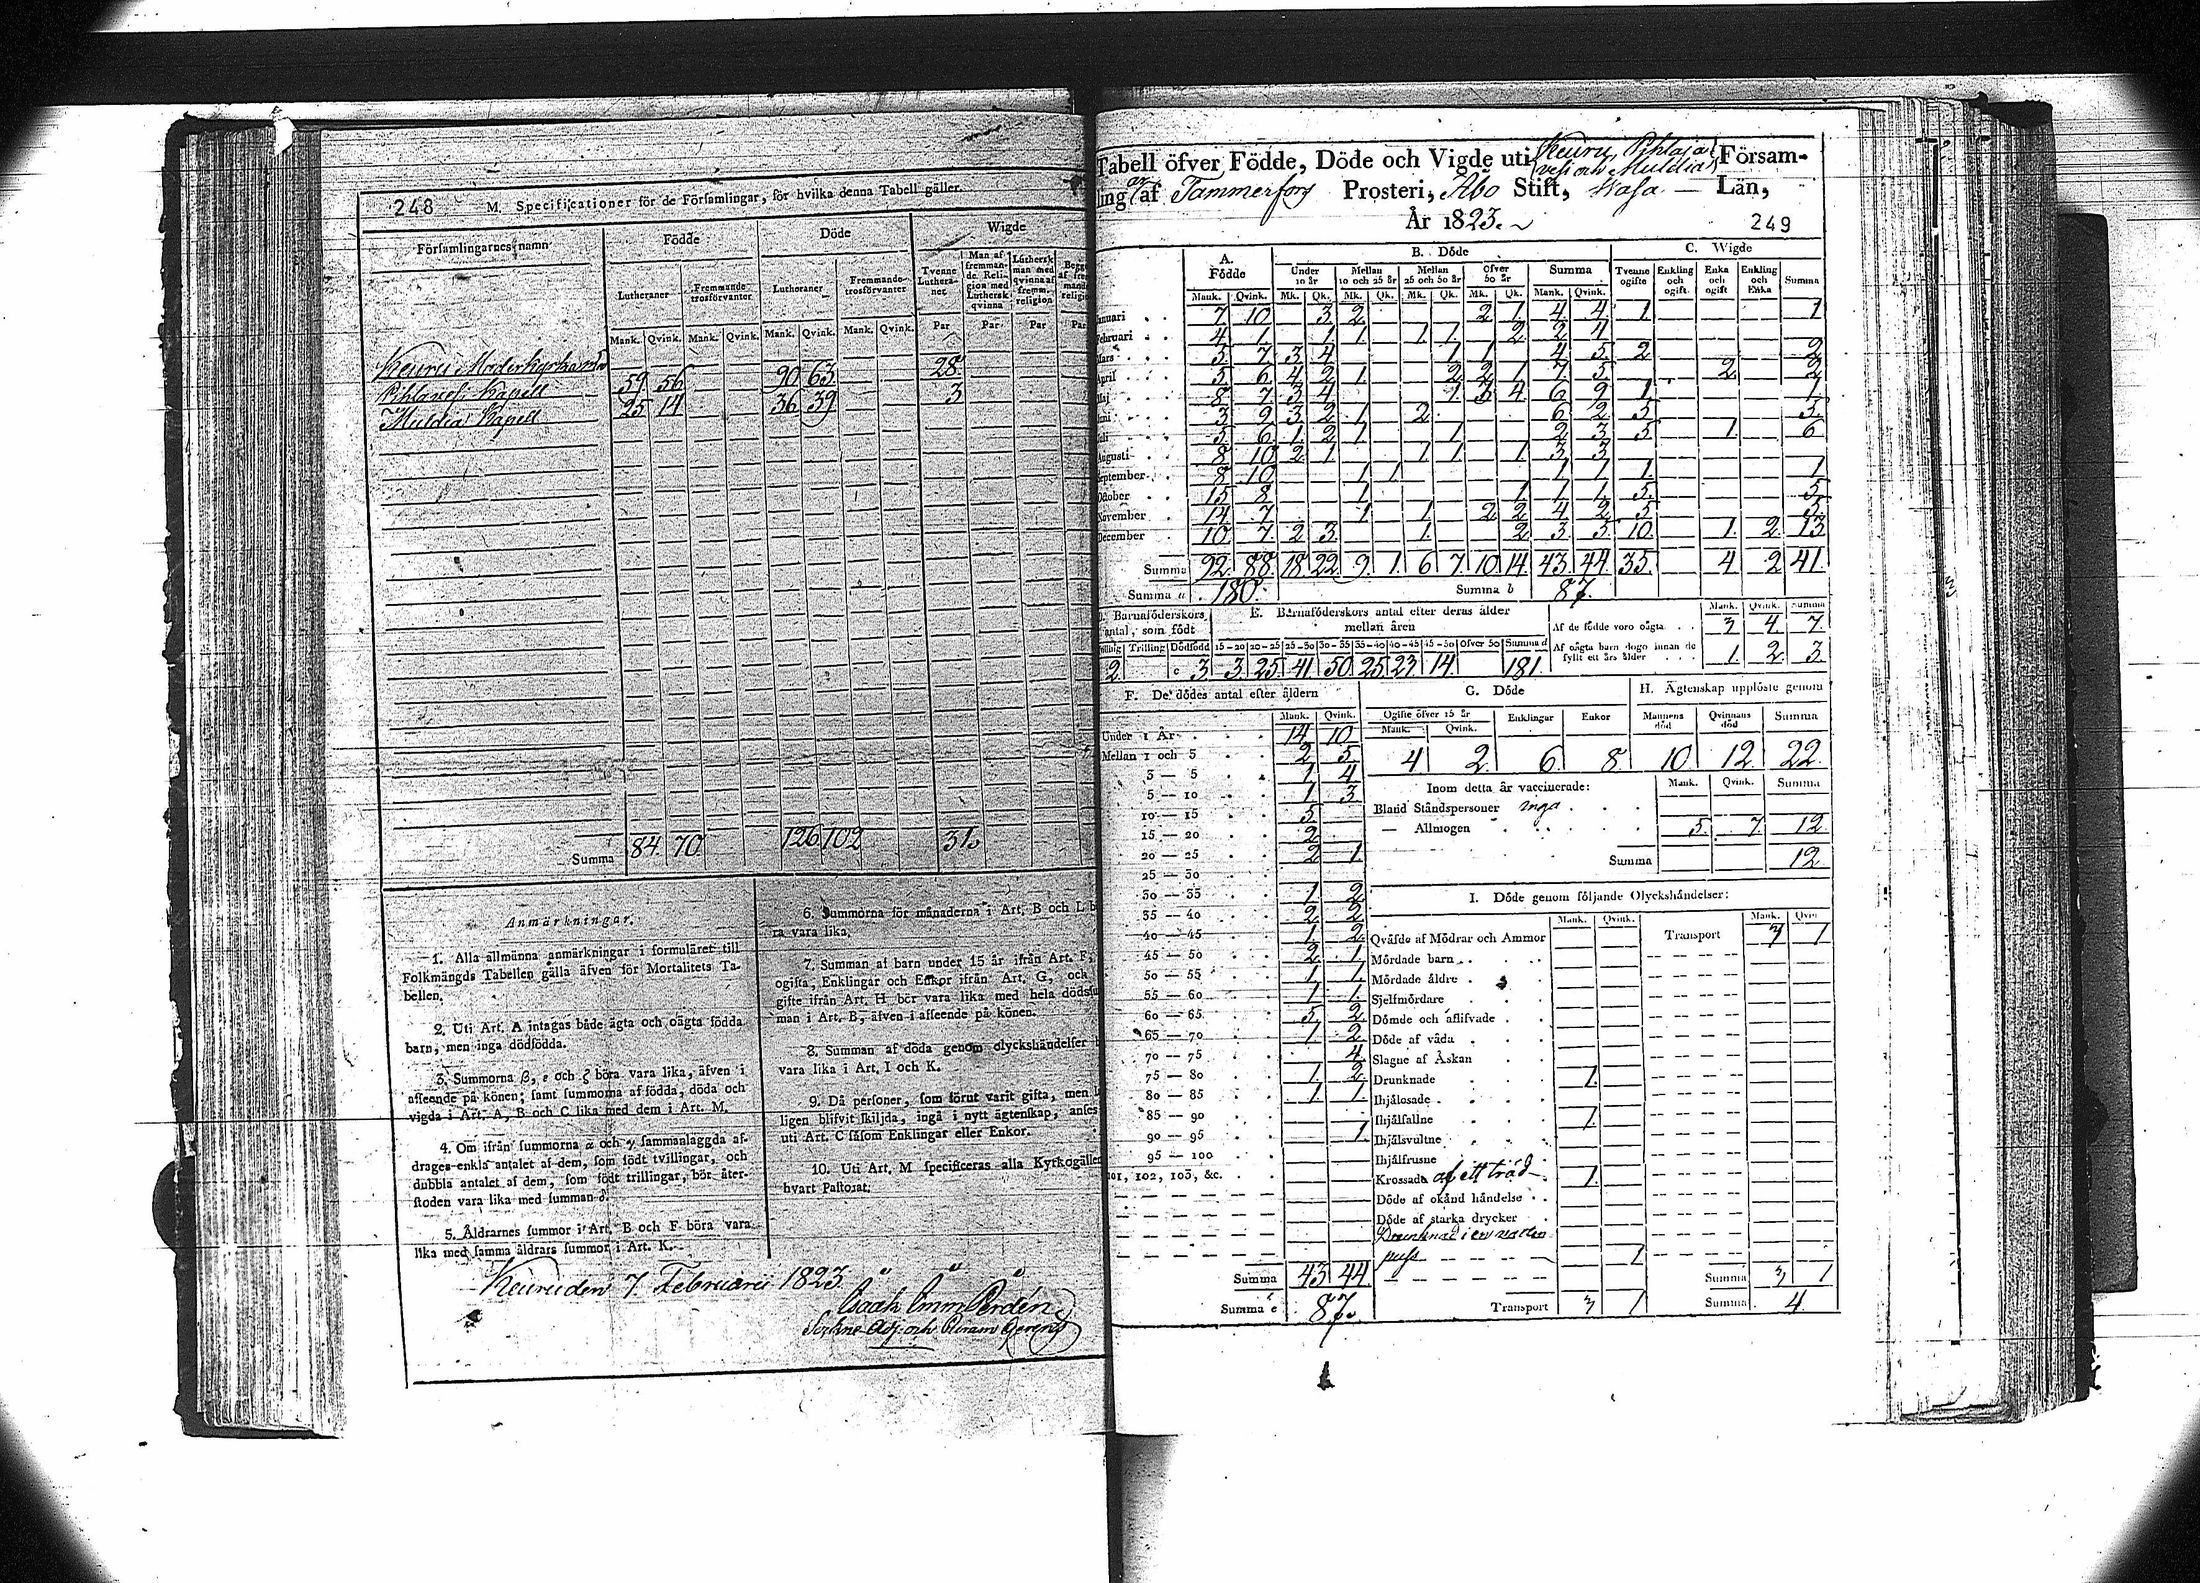 248 M. Specificationer för de Församlingar, för hvilka denna Tabell gäller.
Församlingarnes namn Födde Döde Wigde
Lutheraner Fremmande trosförvanter Lutheraner Fremmande trosförvanter Tvenne Lutheraner Man af fremmande Religion med Luthersk qvinna Luthersk man med qvinna af fremm. religion
Mank. Qvink. Mank. Qvink. Mank. Qvink. Mank. Qvink. Par Par Par Par
Keuru Moderkyrka 59 56 90 63 28
Pihlavesi Kapell 25 14 36 39 3
Muldia Kapell
Summa 84 70 126 102 31
Anmärkningar.
1. Alla allmänna anmärkningar i formuläret till
Folkmängds Tabellen gälla äfven för Mortalitets Ta-
bellen.
2. Uti Art. A intagas både ägta och oägta födda
barn, men inga dödfödda.
3. Summorna β, ε och ζ böra vara lika, äfven i
afseende på könen; samt summorna af födda, döda och
vigda i Art. A, B och C lika med dem i Art. M.
4. Om ifrån summorna α och γ sammanlaggda af-
drages enkla antalet af dem, som födt tvillingar, och
dubbla antalet af dem, som födt trillingar, bör åter-
stoden vara lika med summan δ.
5. Åldrarnes summor i Art. B och F böra vara
lika med samma åldrars summor i Art. K.
6. Summorna för månaderna i Art. B och L b
ra vara lika.
7. Summan af barn under 15 år ifrån Art. F,
ogifta, Enklingar och Enkor ifrån Art. G, och
gifte ifrån Art. H bör vara lika med hela dödssu
man i Art. B, äfven i afseende på könen.
8. Summan af döda genom olyckshändelser
vara lika i Art. I och K.
9. Då personer, som förut varit gifta, men
ligen blifvit skiljda, ingå i nytt ägtenskap, anses
uti Art. C såsom Enklingar eller Enkor.
10. Uti Art. M specificeras alla Kyrkogäller
hvart Pastorat.
Keuru den 7. Februarii 1823.
Isaak Imm Perdén
Tabell öfver Födde, Döde och Vigde uti Keuru Pihlaja
vesi och Muldia Försam-
ling af Tammerfors Prosteri, Åbo Stift, Wasa Län,
År 1823.
249
A. Födde B. Döde C. Wigde
Under 10 år Mellan 10 och 25 år Mellan 25 och 50 år Öfver 50 år Summa Tvenne ogifte Enkling och ogift Enka och ogift Enkling och Enka Summa
Mank. Qvink. Mk. Qk. Mk. Qk. Mk. Qk. Mk. Qk. Mank. Qvink.
anuari 7 10 3 2 2 1 4 4 1 1
ebruari 4 1 1 1 1 1 2 2 4
ars 5 7 3 4 1 1 4 5 2 2
April 5 6 4 2 1 2 2 1 7 5 2 2
aj 8 7 3 4 1 3 4 6 9 1 1
uni 3 9 3 2 1 2 6 2 3 3
uli 5 6 1 2 1 1 2 3 5 1 6
ugusti 8 10 2 1 1 1 1 3 3
eptember 8 10 1 1 1 1 1 1
ctober 15 8 1 1 1 1 5 5
ovember 14 7 1 1 2 2 4 2 5 5
ecember 10 7 2 3 1 2 3 3 10 1 2 13
Summa 92 88 18 22 9 1 6 7 10 14 43 44 35 4 2 41
Summa a 180 Summa b 87
Barnaföderskors antal, som födt E. Barnaföderskors antal efter deras ålder
mellan åren
Trilling Dödfödd 15-20 20-25 25-30 30-35 35-40 40-45 45-50 Öfver 50 Summa d
2 c 3 3 25 41 50 25 23 14 181
Mank. Qvink. Summa
Af de födde voro oägta 3 4 7
Af oägta barn dogo innan de
fyllt ett års ålder 1 2 3
F. De dödes antal efter åldern
Mank. Qvink.
Under 1 År 14 10
Mellan 1 och 3 2 5
3 — 5 1 4
5 — 10 1 3
10 — 15 5
15 — 20 2
20 — 25 2 1
25 — 30
30 — 35 1 2
35 — 40 2 2
40 — 45 1 2
45 — 50 2 1
50 — 55 1 1
55 — 60 1 1
60 — 65 5 2
65 — 70 1 2
70 — 75 4
75 — 80 1 2
80 — 85 1 1
85 — 90
90 — 95 1
95 — 100
101, 102, 103, &c.
Summa 43 44
Summa e 87
G. Döde
Ogifte öfver 15 år Enklingar Enkor
Mank. Qvink.
4 2 6 8
H. Ägtenskap upplöste genom
Mannens död Qvinnans död Summa
10 12 22
Inom detta år vaccinerade: Mank. Qvink. Summa
Bland Ståndspersoner inga
— Allmogen 5 7 12
Summa 12
I. Döde genom följande Olyckshändelser:
Mank. Qvink. Mank.
Qväfde af Mödrar och Ammor Transport 3 1
Mördade barn
Mördade äldre
Sjelfmördare
Dömde och aflifvade
Döde af våda
Slagne af Åskan
Drunknade 1
Ihjälosade
Ihjälfallne 1
Ihjälsvultne
Ihjälfrusne
Krossade af ett träd 1
Döde af okänd händelse
Döde af starka drycker
Drunknad i en vatten
puss 1
Summa 3 1
Transport 3 1 Summa 4